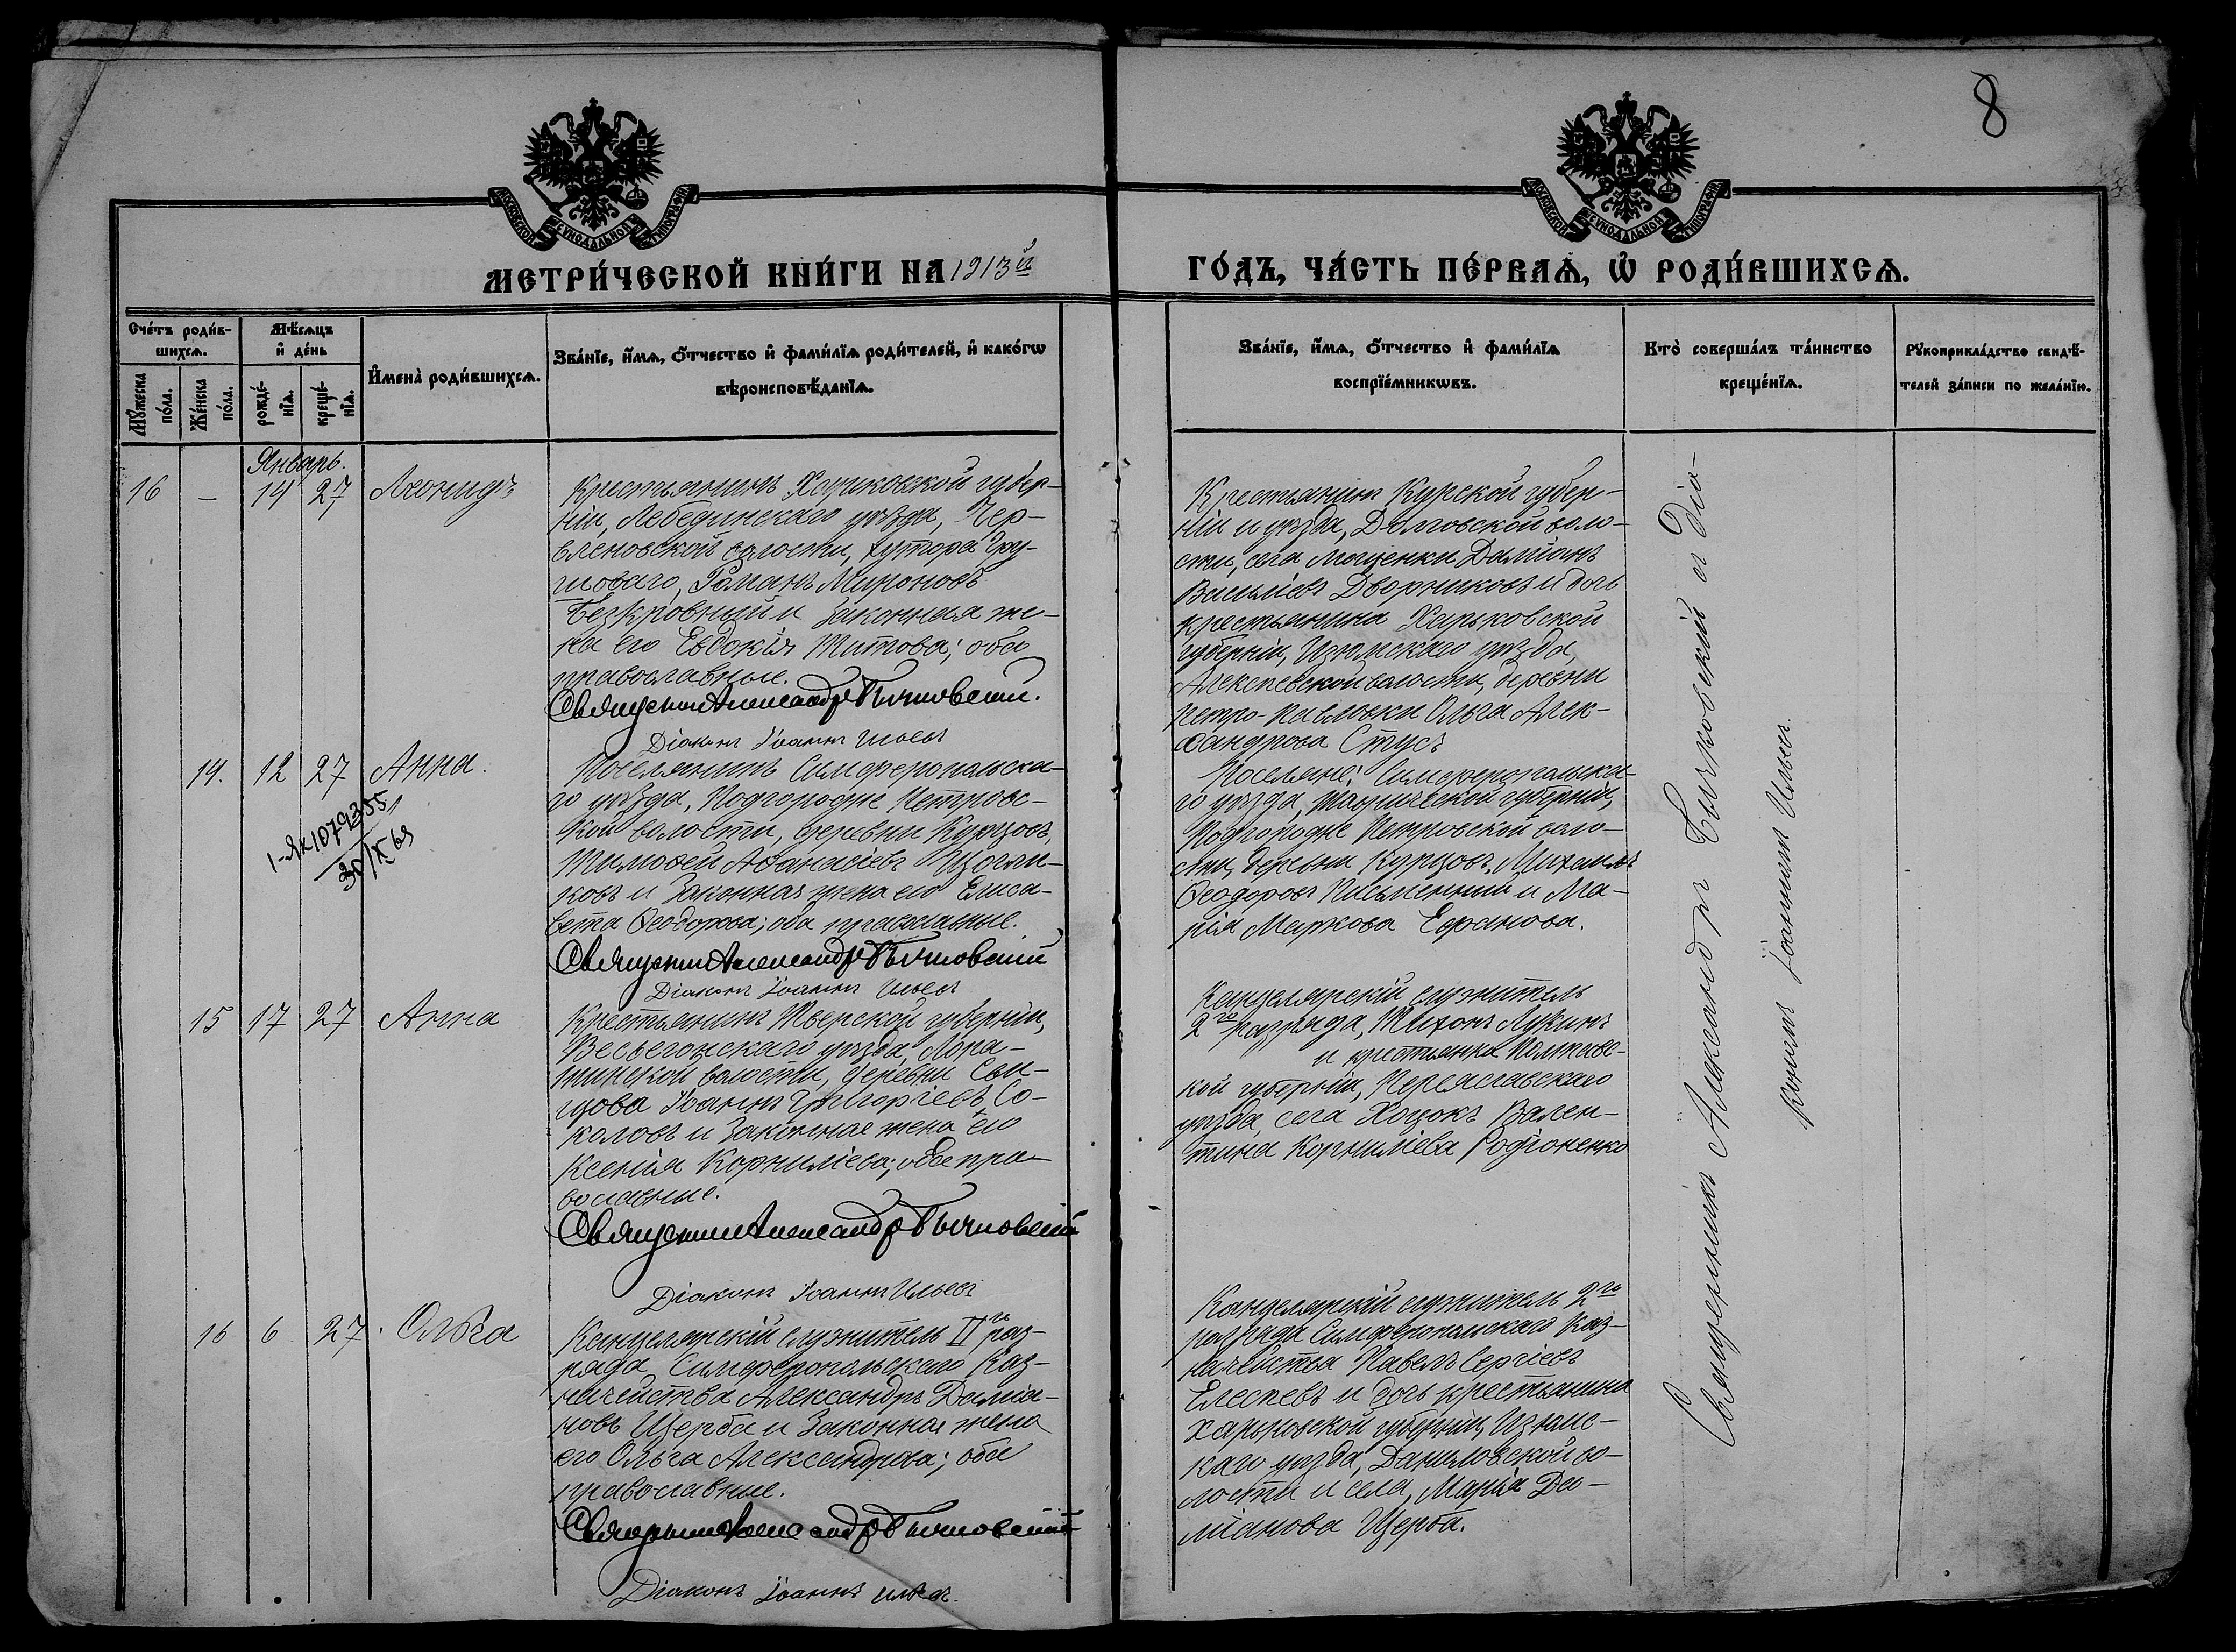 8
МОСКОВСКОЙ СѴНОДАЛЬНОЙ ТИПОГРАФІИ
МОСКОВСКОЙ СѴНОДАЛЬНОЙ ТИПОГРАФІИ
МЕТРИ́ЧЕСКОЙ КНИ́ГИ НА 1913й
ГО́ДЪ, ЧА́СТЬ ПЕ́РВАѦ, Ѡ҆ РОДИ́ВШИХСѦ.
Сче́тъ роди́в-
шихсѧ.
Мꙋ́жеска по́ла.
Же́нска по́ла.
Мѣ́сѧцъ
и҆ де́нь
рожде́-
нїѧ.
креще́-
нїѧ.
И҆мена̀ роди́вшихсѧ.
Зва́нїе, и҆́мѧ, ѻ҆́тчество и҆ фами́лїѧ роди́телей, и҆ како́гѡ
вѣроисповѣ́данїѧ.
Зва́нїе, и҆́мѧ, ѻ҆́тчество и҆ фами́лїѧ
воспрїе́мникѡвъ.
Кто̀ соверша́лъ та́инство
креще́нїѧ.
Рꙋкоприкла́дство свидѣ́-
телей за́писи по жела́нїю.
Январь.
16 — 14 27 Леонидъ
Крестьянинъ Харьковской губер-
ніи, Лебединскаго уѣзда, Чер-
вленовской волости, хутора Гру-
шоваго, Романъ Мироновъ
Безкровный и законная же-
на его Евдокія Титова; оба
православные.
Священникъ Александръ Бычковскій.
Діаконъ Іоаннъ Ильевъ
Крестьянинъ Курской губер-
ніи и уѣзда, Долговской воло-
сти, села Мощенки Даміанъ
Васильевъ Дворниковъ и дочь
крестьянина Харьковской
губерніи, Изюмскаго уѣзда,
Алексеевской волости, деревни
Петро-Павловки Ольга Алек-
сандрова Стусъ
14. 12 27 Анна.
1-Як 1079355
30/IX 69
Поселянинъ Симферопольска-
го уѣзда, Подгородне Петровс-
кой волости, деревни Курцовъ,
Тимофей Афанасіевъ
ковъ и законная жена его Елиса-
вета Ѳеодорова; оба православные.
Священникъ Александръ Бычковскій
Діаконъ Іоаннъ Ильевъ
Поселяне: Симферопольска-
го уѣзда, Таврической губерніи,
Подгородне Петровской воло-
сти, деревни Курцовъ, Михаилъ
Ѳеодоровъ Письменный и Ма-
рія Маркова Ефанова.
15 17 27 Анна
Крестьянинъ Тверской губерніи,
Весьегонскаго уѣзда, Лопа-
тинской волости, деревни Сы-
цова Іоаннъ Григоріевъ Со-
коловъ и законная жена его
Ксенія Корниліева; оба пра-
вославные.
Священникъ Александръ Бычковскій
Діаконъ Іоаннъ Ильевъ
Канцелярскій служитель
2го разряда, Тихонъ Лукинъ
и крестьянка Полтавс-
кой губерніи, Переяславскаго
уѣзда, села Хоцокъ Вален-
тина Корниліева Родіоненко
16 6 27. Ольга
Канцелярскій служитель IIго раз-
ряда, Симферопольскаго Каз-
начейства Александръ Даміа-
новъ Щерба и законная жена
его Ольга Александрова; оба
православные.
Священникъ Александръ Бычковскій
Діаконъ Іоаннъ Ильевъ.
Канцелярскій служитель 2го
разряда Симферопольскаго Каз-
начейства Павелъ Сергіевъ
Елесеевъ и дочь крестьянина
Харьковской губерніи, Изюмс-
каго уѣзда, Даниловской во-
лости и села, Марія Да-
міанова Щерба.
Священникъ Александръ Бычковскій и діа-
конъ Іоаннъ Ильевъ.